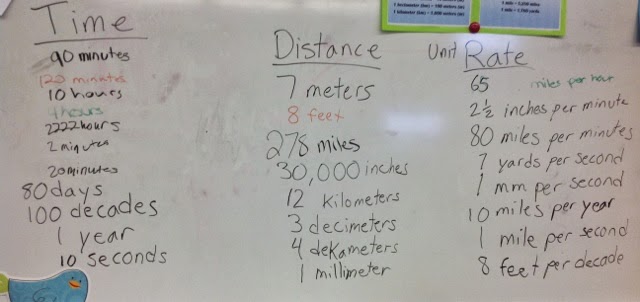 Time
90 minutes
120 minutes
10 hours
4 hours
2222 hours
2 minutes
20 minutes
80 days
100 decades
1 year
10 seconds
Distance
7 meters
8 feet
278 miles
30,000 inches
12 Kilometers
3 decimeters
4 dekameters
1 millimeter
Unit Rate
65 miles per hour
2 1/2 inches per minute
80 miles per minutes
7 yards per second
1 mm per second
10 miles per year
1 mile per second
8 feet per decade